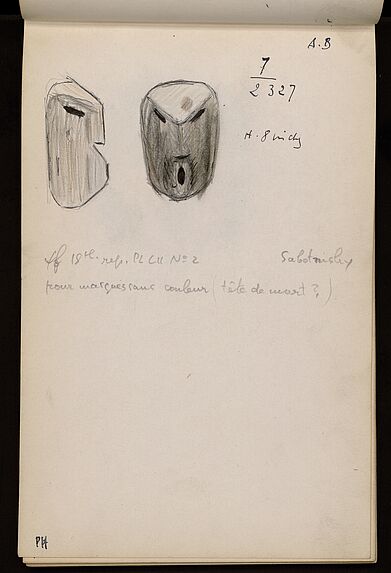 A.B
7
2 327
H. 8 inchs
Cf 19th rep. Pl CII No 2 Sabotnisky
pour masques sans couleur (tête de mort ?)
PH